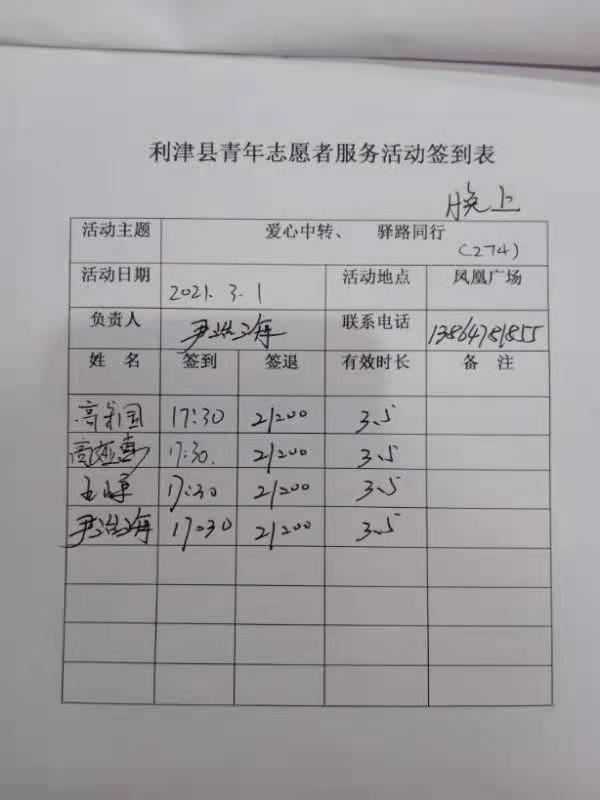 利津县青年志愿者服务活动签到表
晚上
活动主题 爱心中转、 驿路同行
(274)
活动日期 2021.3.1 活动地点 凤凰广场
负责人 尹治海 联系电话 13864781855
姓 名 签到 签退 有效时长 备 注
高 国 17:30 21:00 3.5
高 17:30. 21:00 3.5
王 17:30 21:00 3.5
尹治海 17:30 21:00 3.5